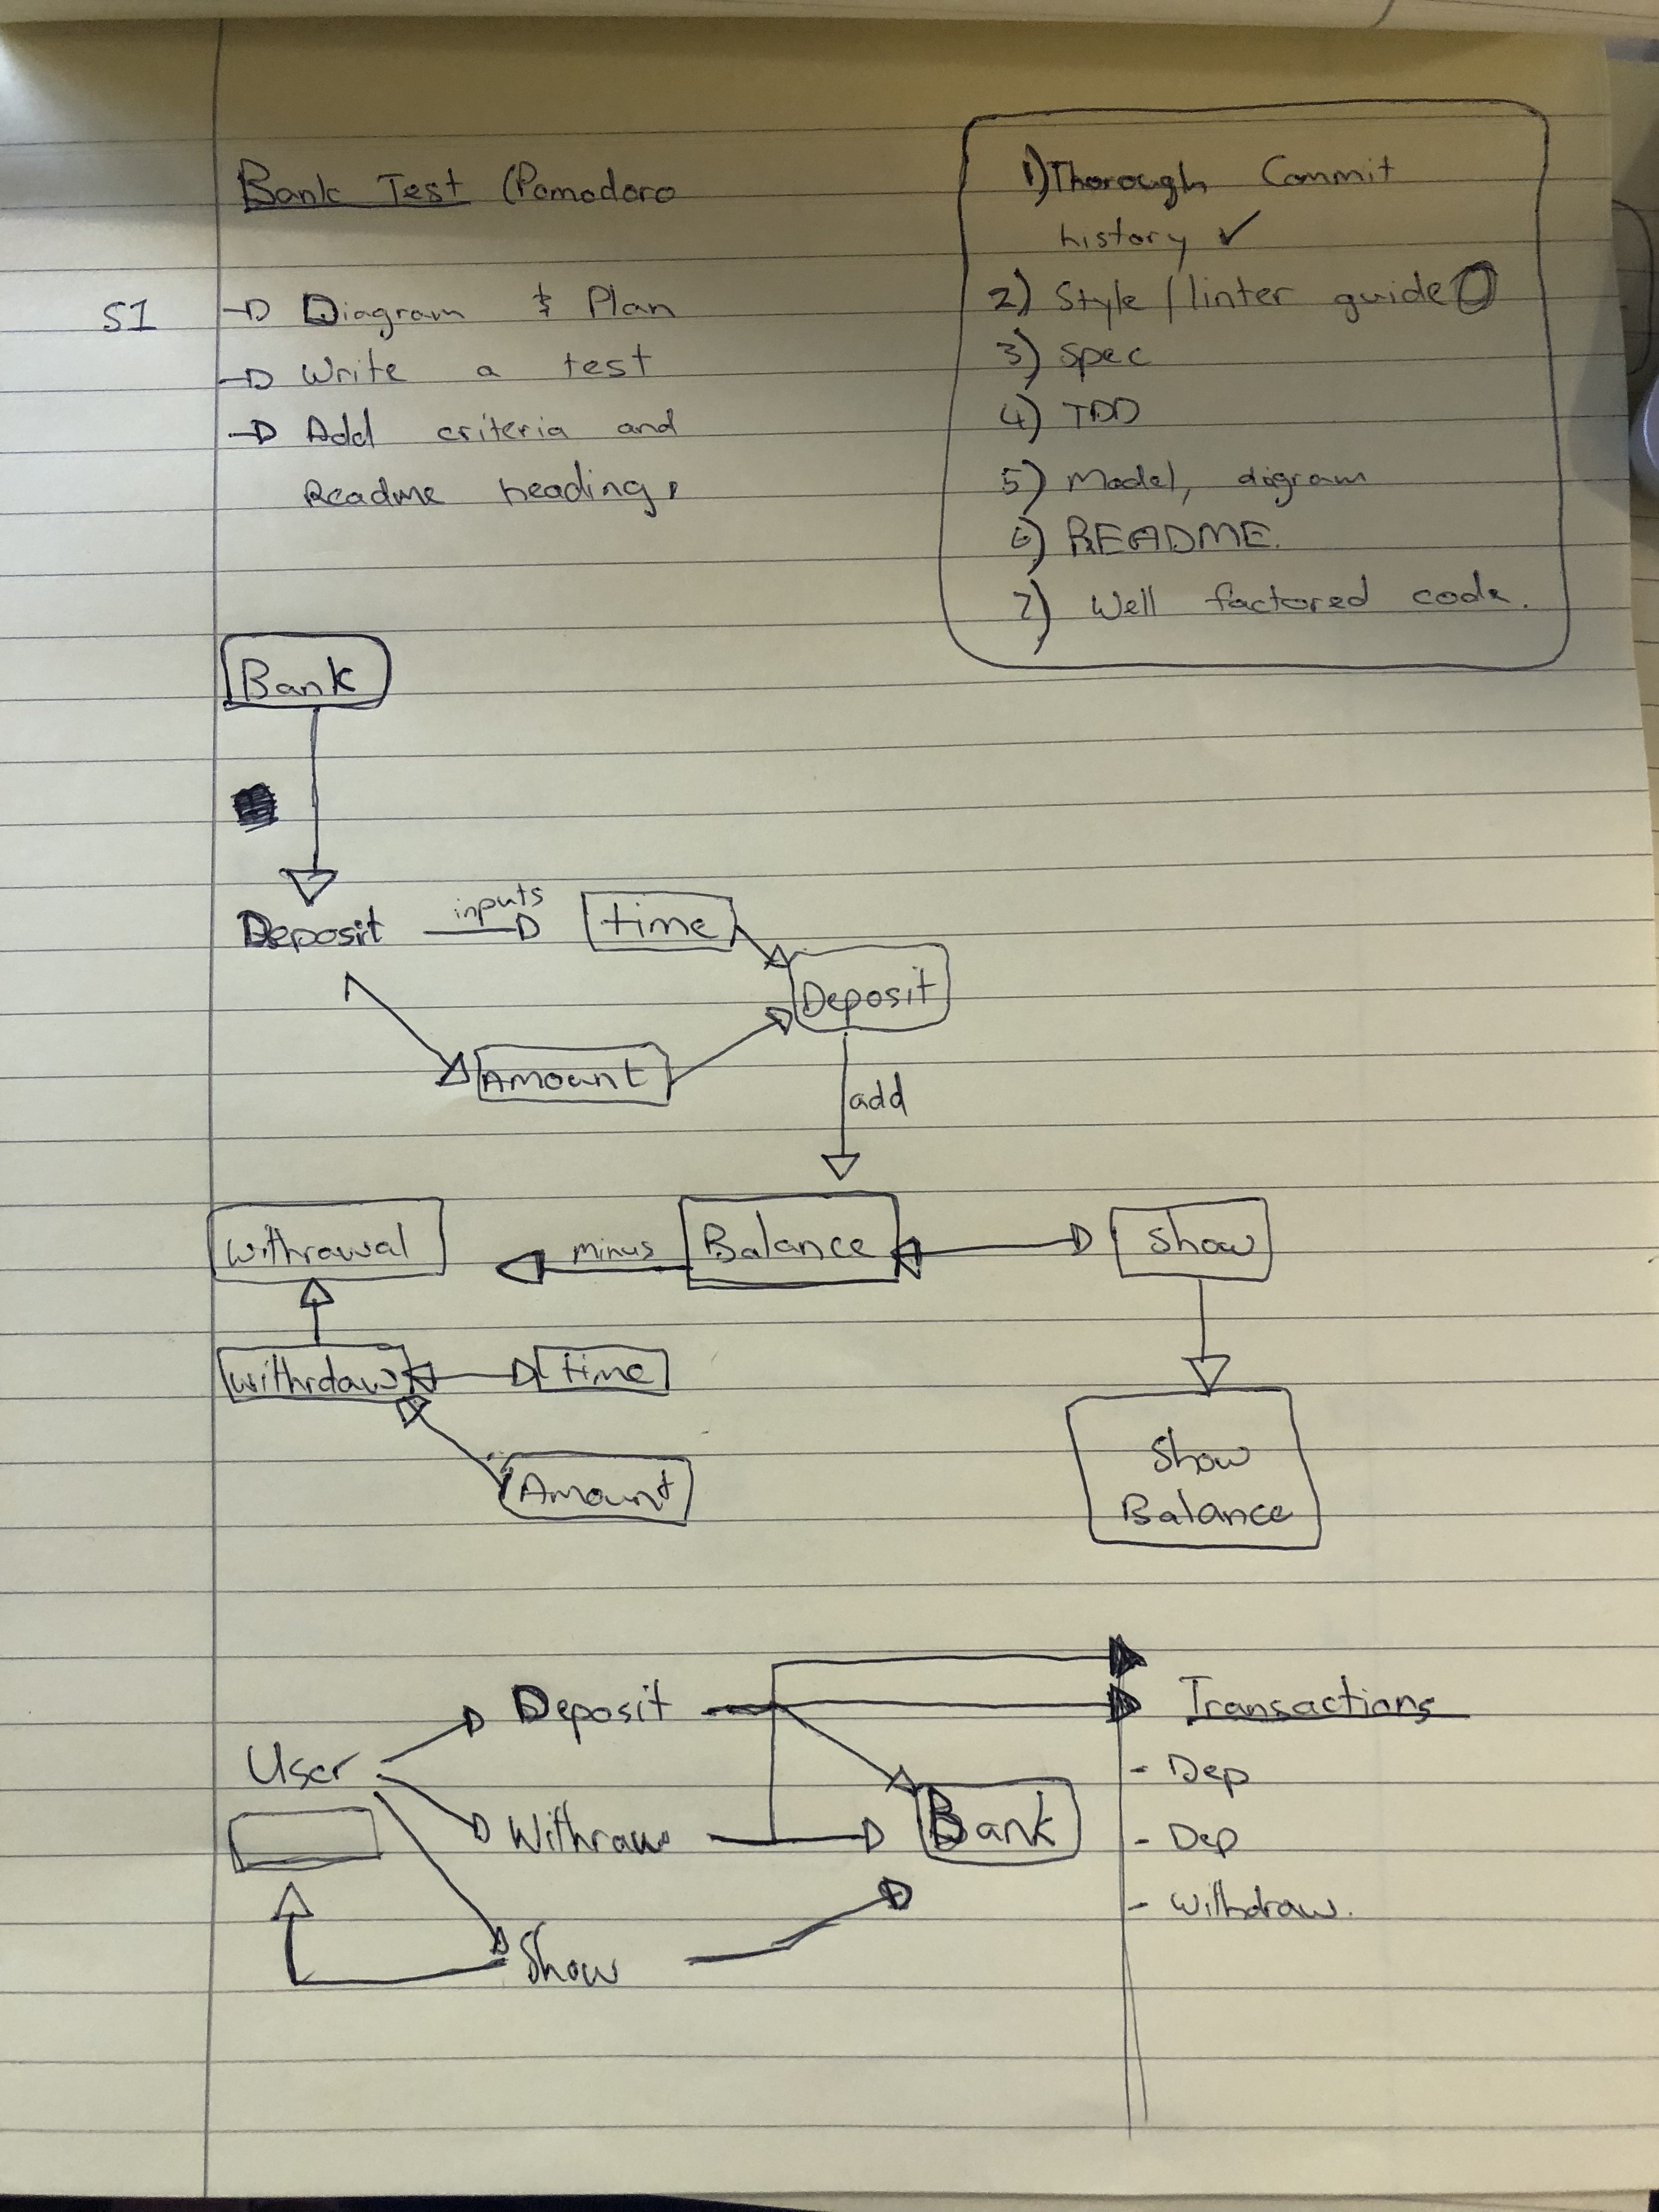 Bank Test (Pomodoro
S1 → Diagram & Plan
→ Write a test
→ Add criteria and
Readme headings
1) Thorough Commit
history ✓
2) Style / linter guide
3) Spec
4) TDD
5) Model, digram
6) README.
7) Well factored code.
Bank
Deposit inputs time
Deposit
Amount
add
Withrawal minus Balance Show
withrdaw time
Amount
Show
Balance
Deposit Transactions
User - Dep
Withraw Bank - Dep
- Withdraw.
Show